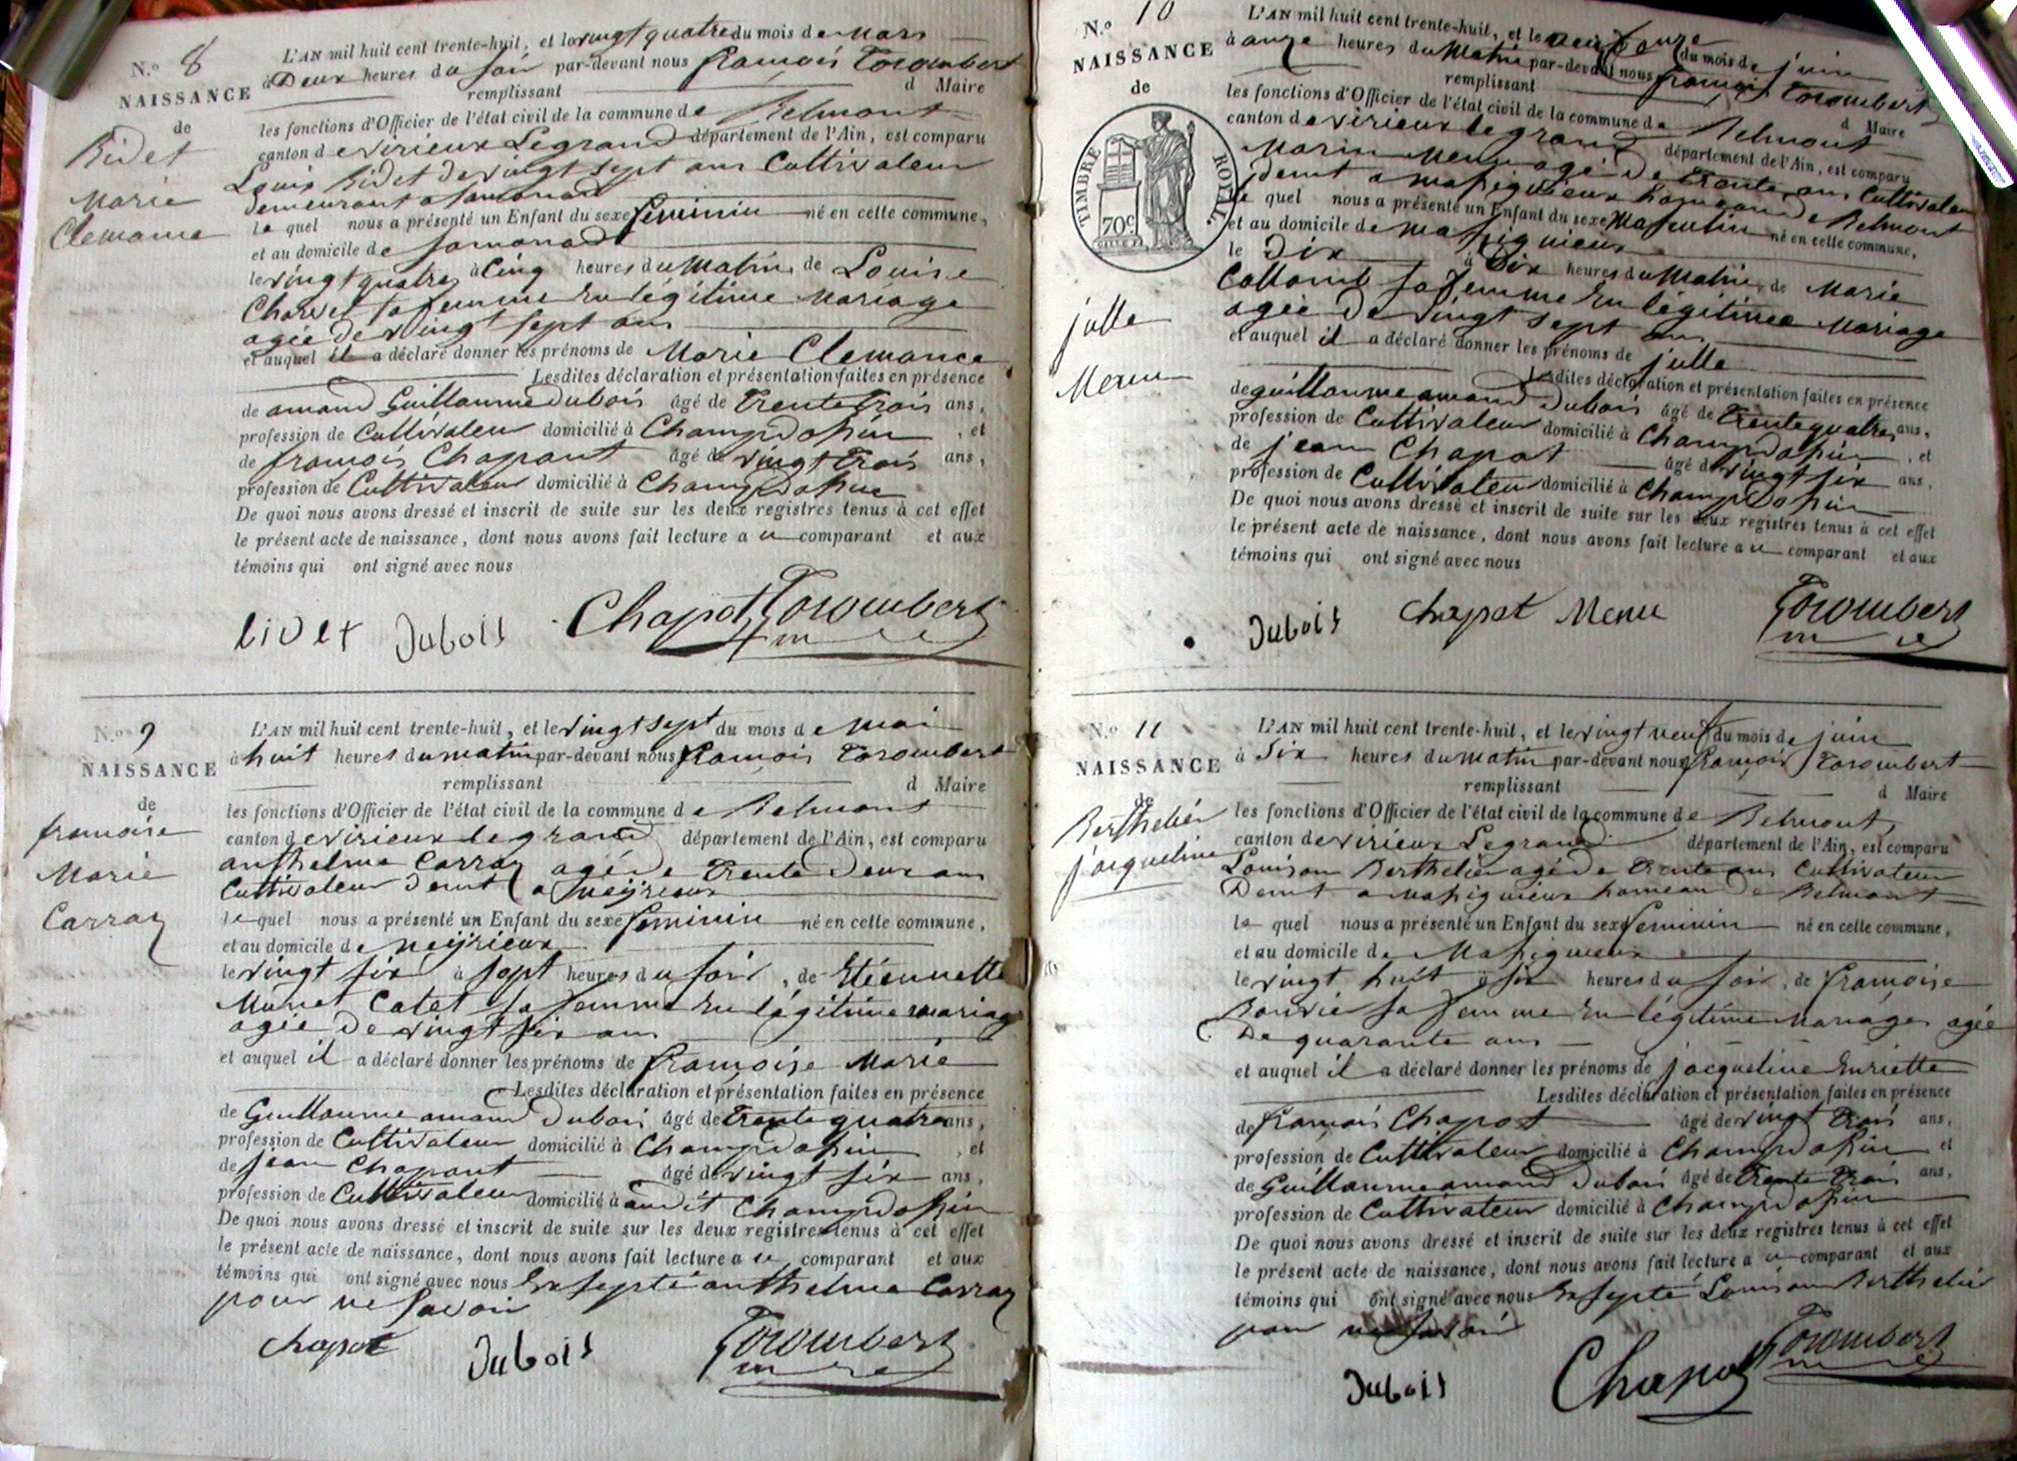 N.º 8
NAISSANCE
de
Bidet
Marie
Clemance
L'AN mil huit cent trente-huit, et le vingt quatre du mois de Mars
à Deux heures du soir par-devant nous françois Torombert
remplissant d Maire
les fonctions d'Officier de l'état civil de la commune de Belmont
canton de virieux Legrand département de l'Ain, est comparu
Louis Bidet de vingt sept ans Cultivateur
demeurant a Samonod
Le quel nous a présenté un Enfant du sexe feminin né en cette commune,
et au domicile de Samonod
le vingt quatre à Cinq heures du Matin de Louise
Charvet sa femme En légitime Mariage
agée de vingt sept ans
et auquel il a déclaré donner les prénoms de Marie Clemance
Lesdites déclaration et présentation faites en présence
de amand Guillaume Dubois âgé de Trente Trois ans,
profession de Cultivateur domicilié à Champdossin, et
de françois Chapont âgé de vingt Trois ans,
profession de Cultivateur domicilié à Champdossin
De quoi nous avons dressé et inscrit de suite sur les deux registres tenus à cet effet
le présent acte de naissance, dont nous avons fait lecture a u comparant et aux
témoins qui ont signé avec nous
bidet Dubois Chapot Torombert
N.º 9
NAISSANCE
de
francoise
Marie
Carraz
L'AN mil huit cent trente-huit, et le vingt sept du mois de mai
à huit heures du matin par-devant nous françois Torombert
remplissant d Maire
les fonctions d'Officier de l'état civil de la commune de Belmont
canton de virieux le grand département de l'Ain, est comparu
anthelme Carraz agé de Trente Deux ans
Cultivateur demt a Neÿrieux
le quel nous a présenté un Enfant du sexe feminin né en cette commune,
et au domicile de Neÿrieux
le vingt six à sept heures du soir, de Etiennette
Munet Catet sa femme En légitime mariage
agée de vingt six ans
et auquel il a déclaré donner les prénoms de françoise Marie
Lesdites déclaration et présentation faites en présence
de Guillaume amand Dubois âgé de Trente quatre ans,
profession de Cultivateur domicilié à Champdossin, et
de jean Chapont âgé de vingt six ans,
profession de Cultivateur domicilié à audit Champdossin
De quoi nous avons dressé et inscrit de suite sur les deux registres tenus à cet effet
le présent acte de naissance, dont nous avons fait lecture a u comparant et aux
témoins qui ont signé avec nous Exsepté anthelme Carraz
pour ne Savoir
chapot Dubois Torombert
N.º 10
NAISSANCE
de
TIMBRE ROYAL
70c
julle
Menu
L'AN mil huit cent trente-huit, et le onze du mois de juin
à onze heures du Matin par-devant nous françois Torombert
remplissant d Maire
les fonctions d'Officier de l'état civil de la commune de Belmont
canton de virieux le grand département de l'Ain, est comparu
Marin Menu agé de trente ans Cultivateur
demt a Massignieux hameau de Belmont
le quel nous a présenté un Enfant du sexe Masculin né en cette commune,
et au domicile de Massignieux
le Dix à Dix heures du Matin, de Marie
Collomb sa femme En légitime Mariage
agée de vingt sept ans
et auquel il a déclaré donner les prénoms de julle
Lesdites déclaration et présentation faites en présence
de guillaume amand Dubois âgé de Trente quatre ans,
profession de Cultivateur domicilié à Champdossin, et
de jean Chapot âgé de vingt six ans,
profession de Cultivateur domicilié à Champdossin
De quoi nous avons dressé et inscrit de suite sur les deux registres tenus à cet effet
le présent acte de naissance, dont nous avons fait lecture a u comparant et aux
témoins qui ont signé avec nous
Dubois Chapot Menu Torombert
N.º 11
NAISSANCE
de
Berthelier
jacqueline
L'AN mil huit cent trente-huit, et le vingt neuf du mois de juin
à Six heures du matin par-devant nous françois Torombert
remplissant d Maire
les fonctions d'Officier de l'état civil de la commune de Belmont
canton de virieux Legrand département de l'Ain, est comparu
Louison Berthelier agé de trente ans Cultivateur
Demt a Massignieux hameau de Belmont
le quel nous a présenté un Enfant du sexe feminin né en cette commune,
et au domicile de Massignieux
le vingt huit à six heures du soir, de françoise
Bouvie sa femme En légitime Mariage agée
De quarante ans
et auquel il a déclaré donner les prénoms de jacqueline Enriette
Lesdites déclaration et présentation faites en présence
de francois Chapot âgé de vingt Trois ans,
profession de Cultivateur domicilié à Champdossin et
de Guillaume amand Dubois âgé de Trente Trois ans,
profession de Cultivateur domicilié à Champdossin
De quoi nous avons dressé et inscrit de suite sur les deux registres tenus à cet effet
le présent acte de naissance, dont nous avons fait lecture a u comparant et aux
témoins qui ont signé avec nous Exsepté Louison Berthelier
pour ne savoir
Dubois Chapot Torombert